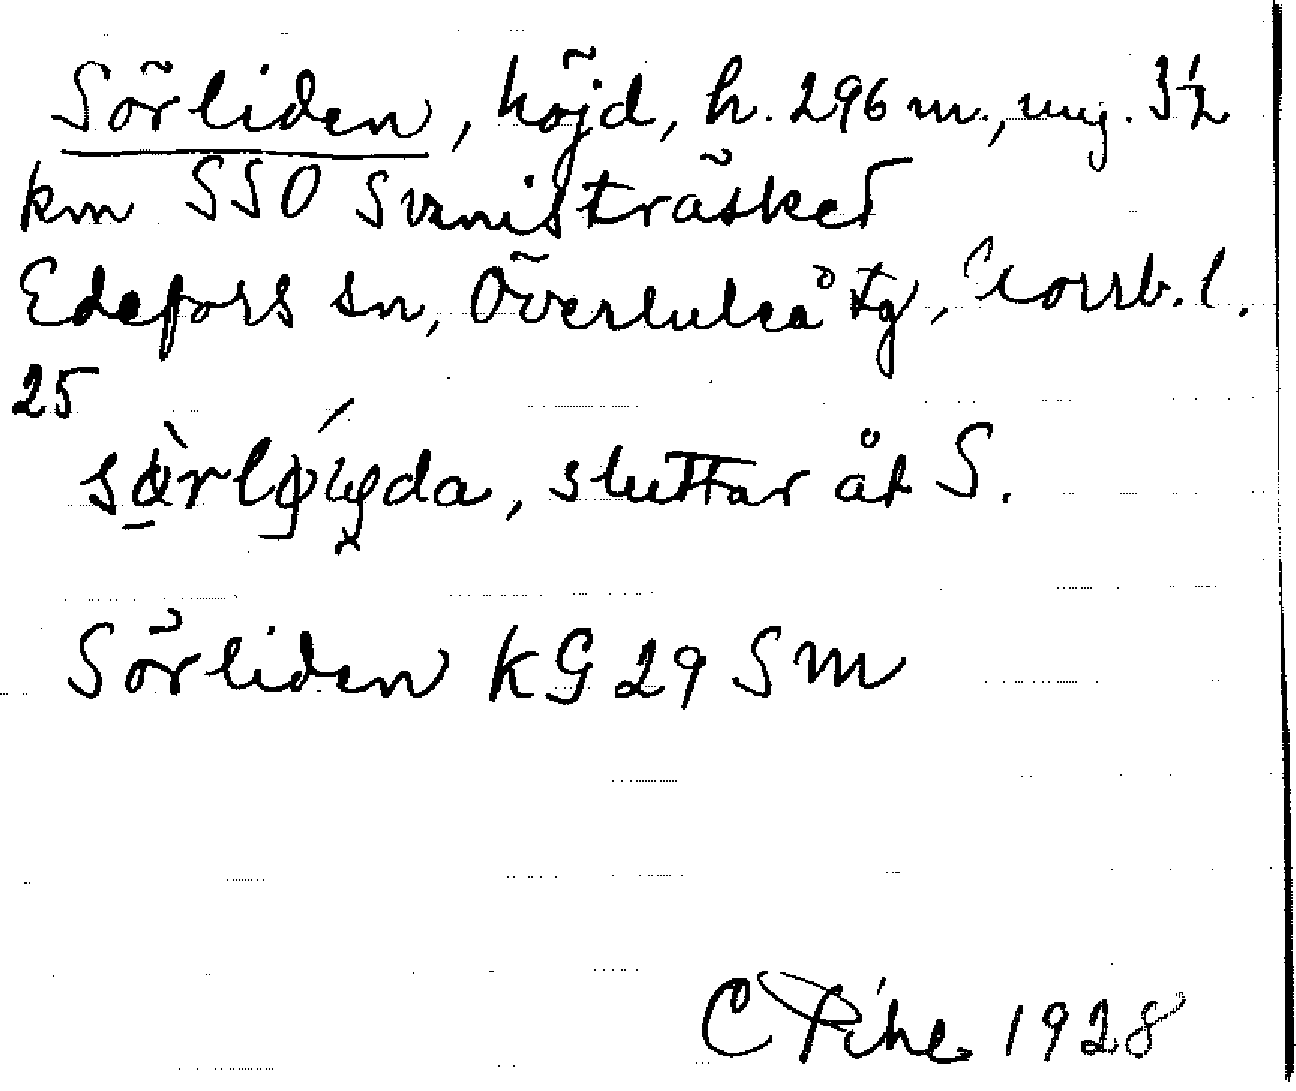 Sörliden, höjd, h. 296 m., ung. 3½
km SSO Svanisträsket
Edefors sn, Överluleå tg, Norrb. l.
25
sluttar åt S.
Sörliden KG 29 Sm
C Pihl 1928